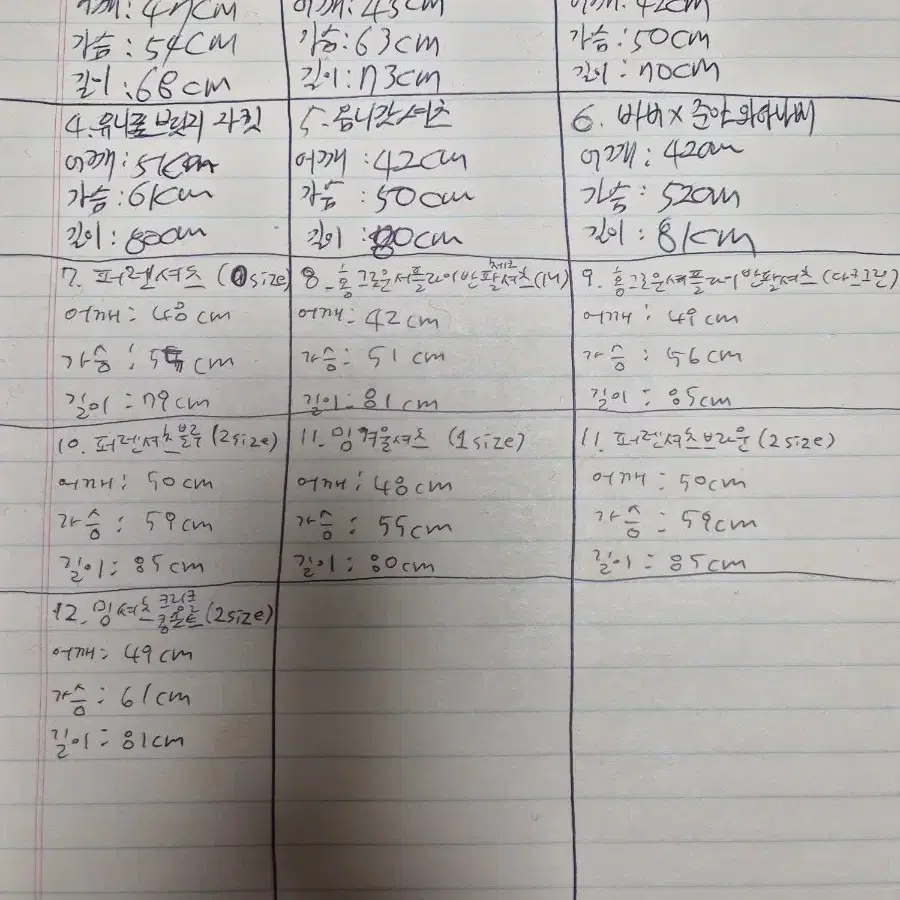 어깨: 47cm
가슴: 54cm
길이: 68cm
어깨: 45cm
가슴: 63cm
길이: 73cm
어깨: 42cm
가슴: 50cm
길이: 70cm
4. 유니폼브릿지 자켓
어깨: 51cm
가슴: 61cm
길이: 80cm
5. 옴니갓셔츠
어깨: 42cm
가슴: 50cm
길이: 80cm
6. 바버 x 준야와타나베
어깨: 42cm
가슴: 52cm
길이: 81cm
7. 퍼렌셔츠 (1size)
어깨: 48cm
가슴: cm
길이: 79cm
8. 홍그로운서플라이반팔셔츠
어깨: 42cm
가슴: 51cm
길이: 81cm
9. 홍그로운서플라이반팔셔츠 (다크그린)
어깨: 49cm
가슴: 56cm
길이: 85cm
10. 퍼렌셔츠블루 (2size)
어깨: 50cm
가슴: 59cm
길이: 85cm
11. 밍겨울셔츠 (1size)
어깨: 48cm
가슴: 55cm
길이: 80cm
11. 퍼렌셔츠브라운 (2size)
어깨: 50cm
가슴: 59cm
길이: 85cm
12. 밍셔츠 (2size)
어깨: 49cm
가슴: 61cm
길이: 81cm